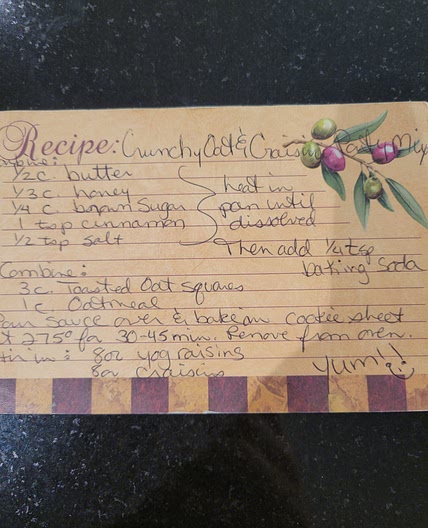 Recipe: Crunchy Oat & Craisin Party Mix
½ c. butter
⅓ c. honey
¼ c. brown sugar
1 tsp cinnamon
½ tsp salt
heat in
pan until
dissolved
Then add ¼ tsp
baking soda
Combine:
3 c. Toasted Oat squares
1 c Oatmeal
sauce over & bake on cookie sheet
275° for 30-45 min. Remove from oven.
in: 8oz yog raisins
8oz craisins
Yum!!